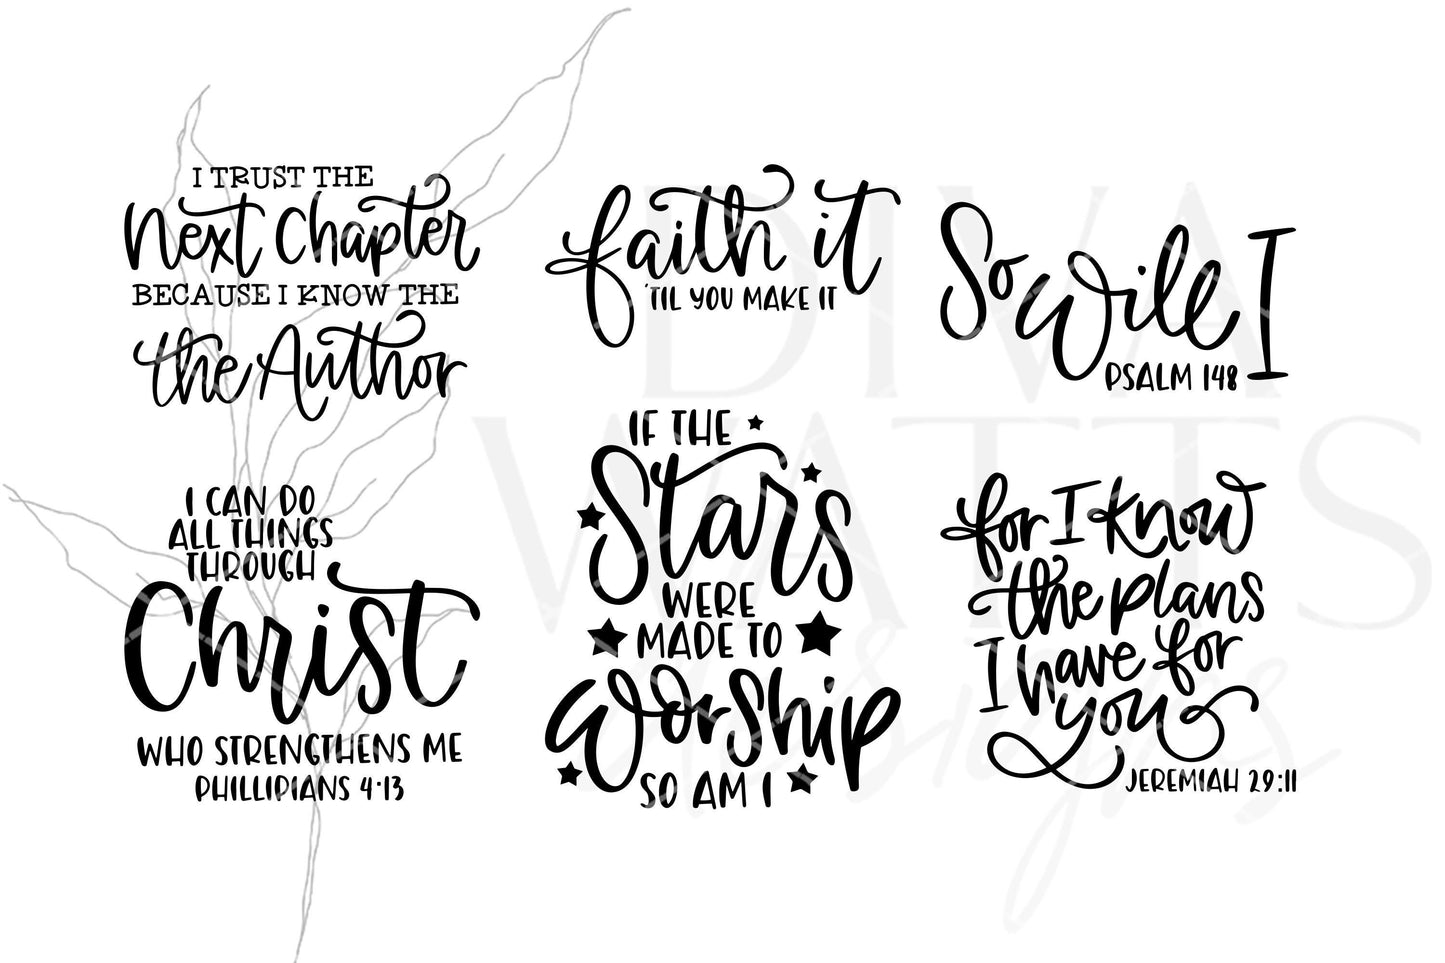 I TRUST THE
Next Chapter
BECAUSE I KNOW THE
the Author
faith it
'TIL YOU MAKE IT
So will I
PSALM 148
I CAN DO
ALL THINGS
THROUGH
Christ
WHO STRENGTHENS ME
PHILLIPIANS 4:13
IF THE
Stars
WERE
MADE TO
Worship
SO AM I
for I know
the plans
I have for
you
JEREMIAH 29:11
DIVA
WATTS
designs